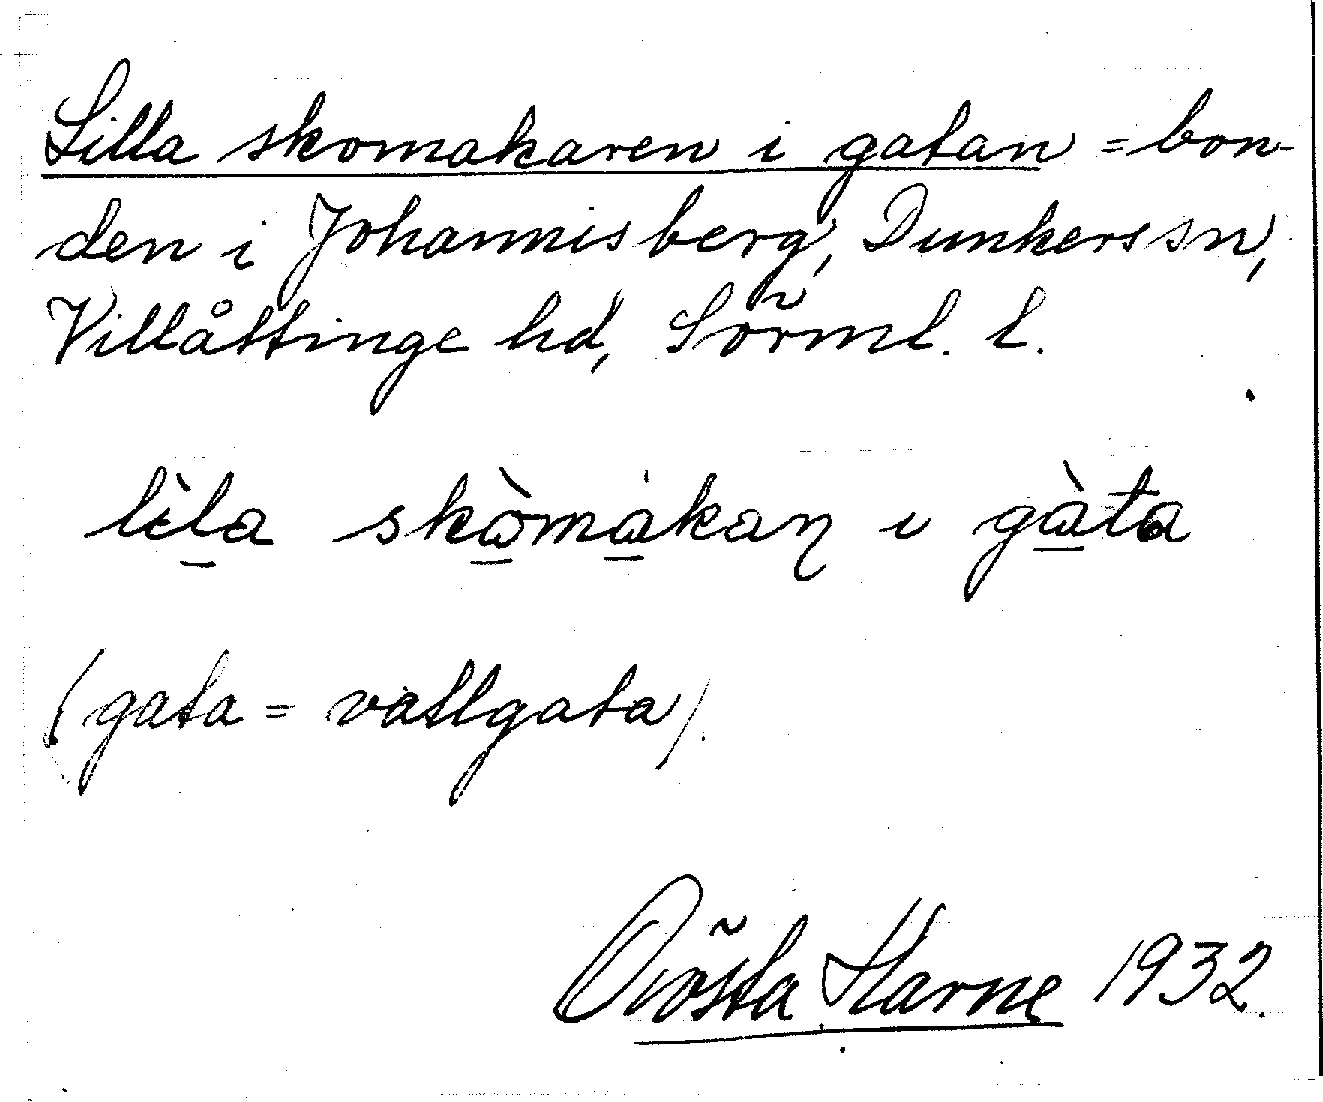 Lilla skomakaren i gatan = bon-
den i Johannisberg, Dunkers sn,
Villåttinge hd, Sörml. l.
lìla skòmakaɳ ı gàta
(gata = vallgata).
Gösta Harne 1932.